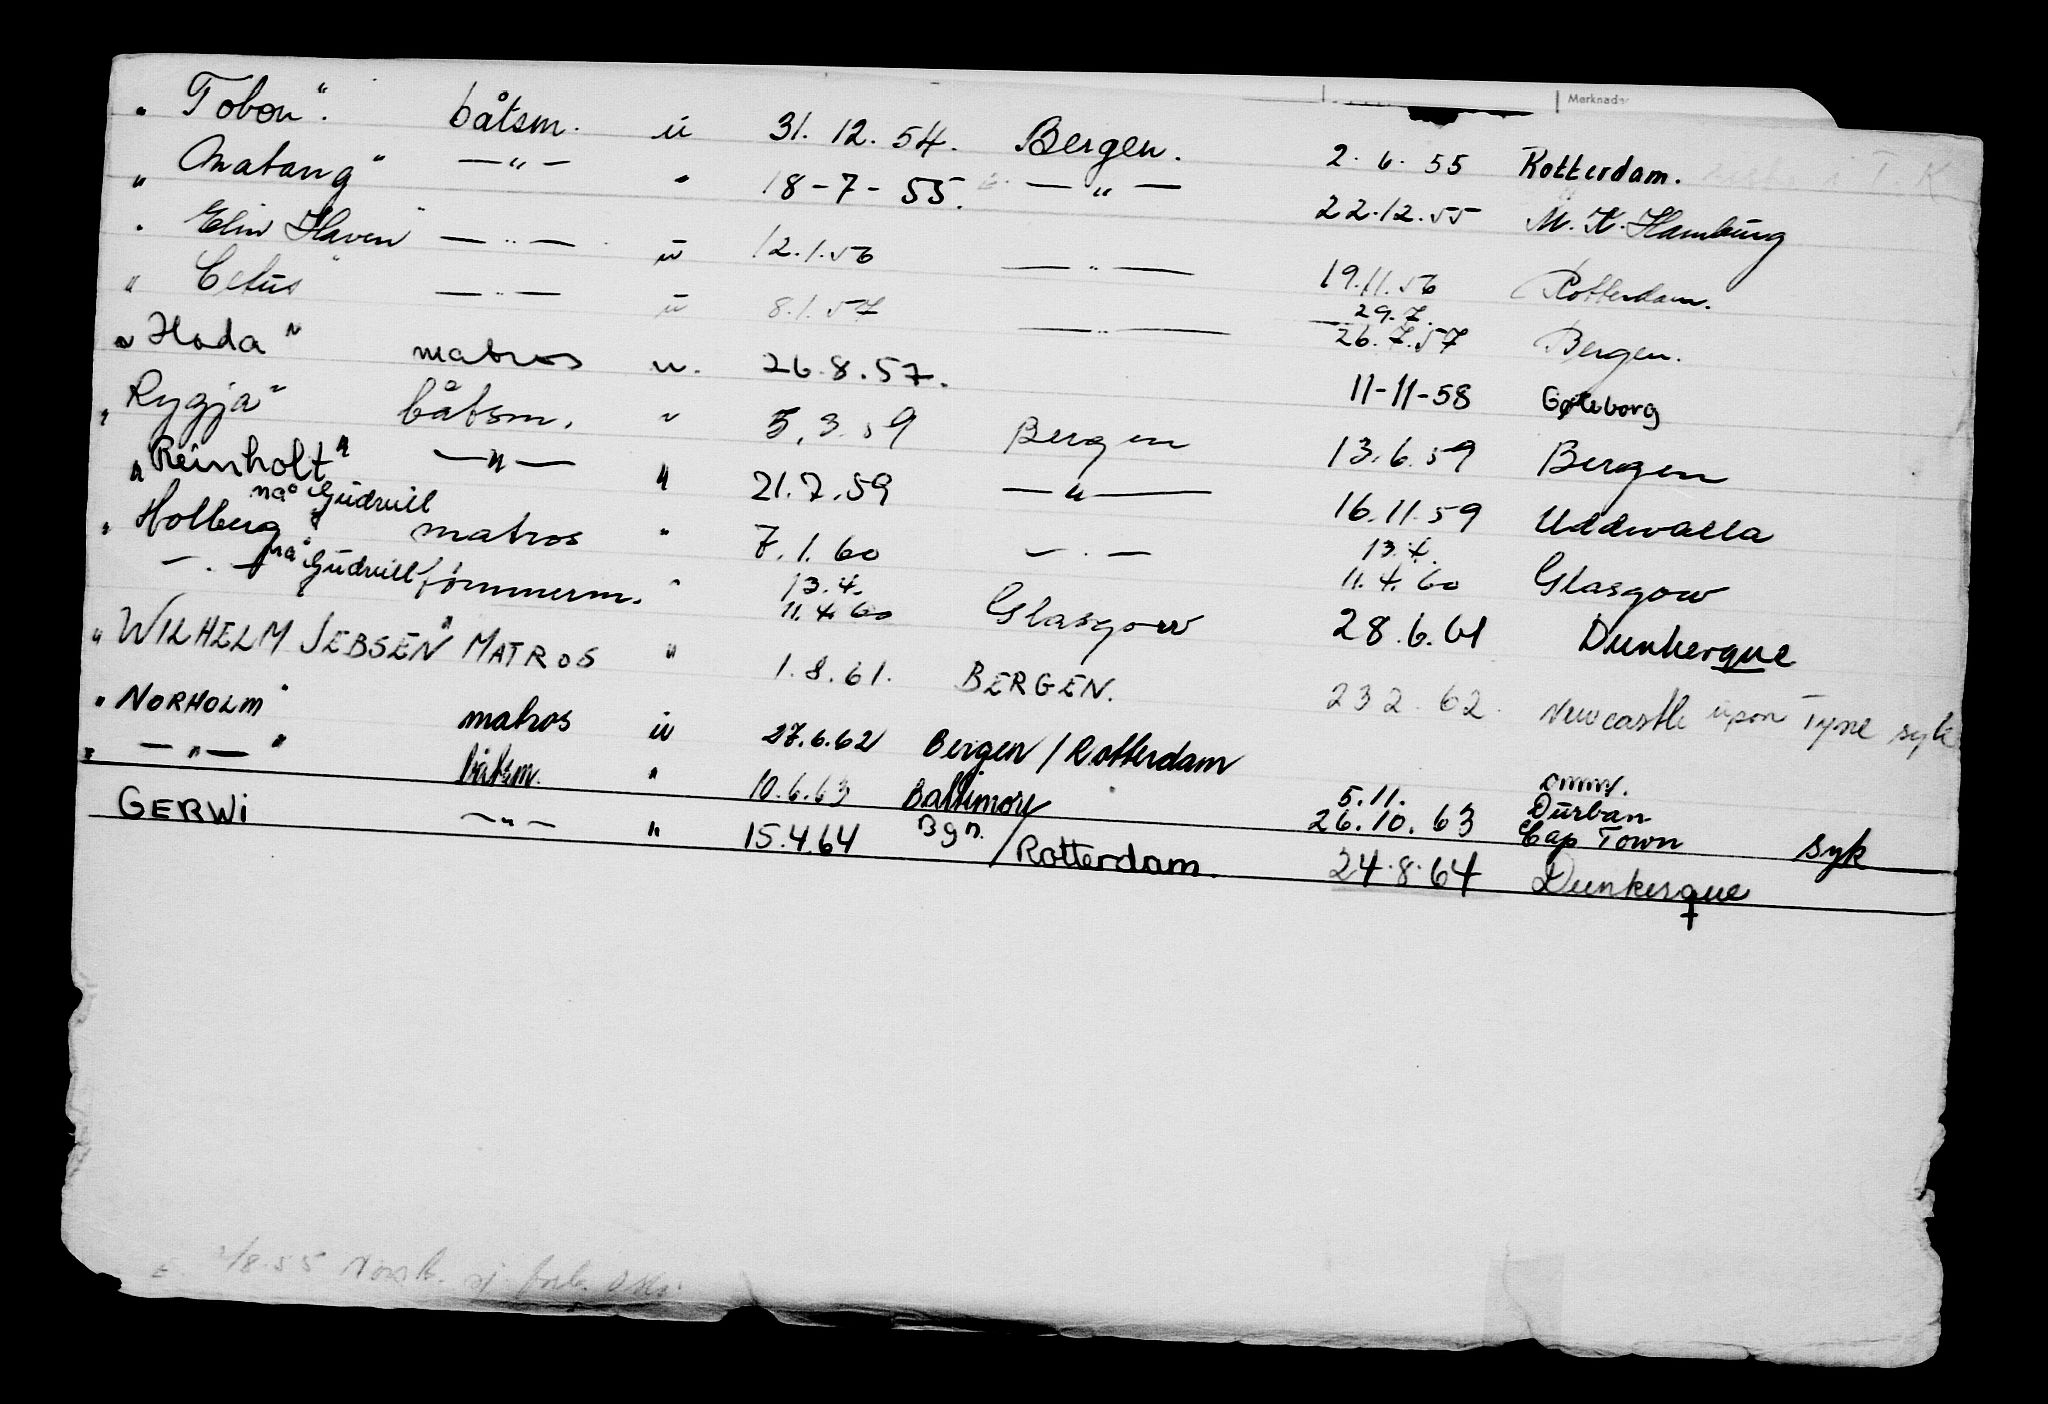 Merknader
" Tobon". båtsm. u 31. 12. 54. Bergen. 2. 6. 55 Rotterdam.
" Matang" —"— " 18-7-55. —"— 22.12.55 M. K. Hamburg
" Elin Haven" —"— u 12.1.56 —"— 19.11.56 Rotterdam.
" Cetus" —"— u 8.1.57 —"— 29.7. 26.7.57 Bergen.
" Hoda" matros u. 26.8.57. 11-11-58 Gøteborg
" Rygja" båtsm. " 5.3.59 Bergen 13.6.59 Bergen
" Reinholt" —"— " 21.7.59 —"— 16.11.59 Uddevalla
nå Gudvill
" Holberg" matros " 7.1.60 —"— 13.4. 11.4.60 Glasgow
—"— nå Gudvill tømmerm. " 13.4. 11.4.60 Glasgow 28.6.61 Dunkerque
" WILHELM JEBSEN" MATROS " 1.8.61. BERGEN. 23 2. 62. Newcastle upon Tyne syk
" NORHOLM" matros u 27.6.62 Bergen / Rotterdam omm.
" —"— " båtsm. " 10.6.63 Baltimore 5.11. 26.10.63 Durban Cap Town syk
GERWI —"— " 15.4.64 Bgn. / Rotterdam. 24.8.64 Dunkerque
/8.55 Norsk. sj. forb. Oslo.